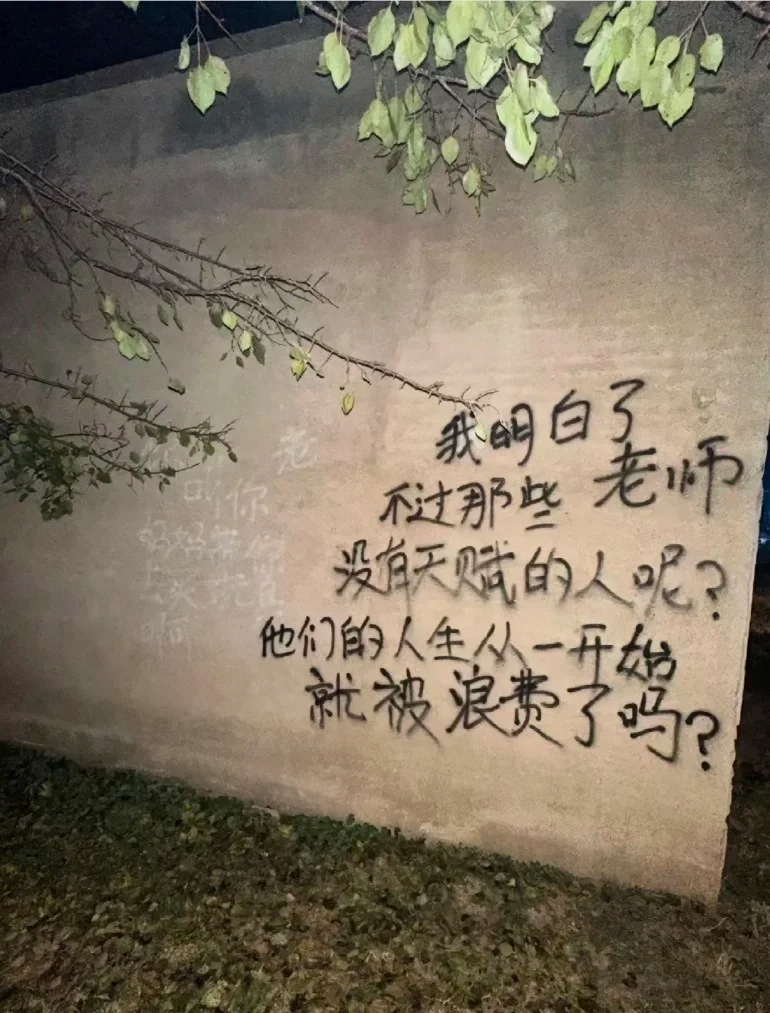 我明白了
老师
不过那些
没有天赋的人呢?
他们的人生从一开始
就被浪费了吗?
老
叫你
妈妈
啊